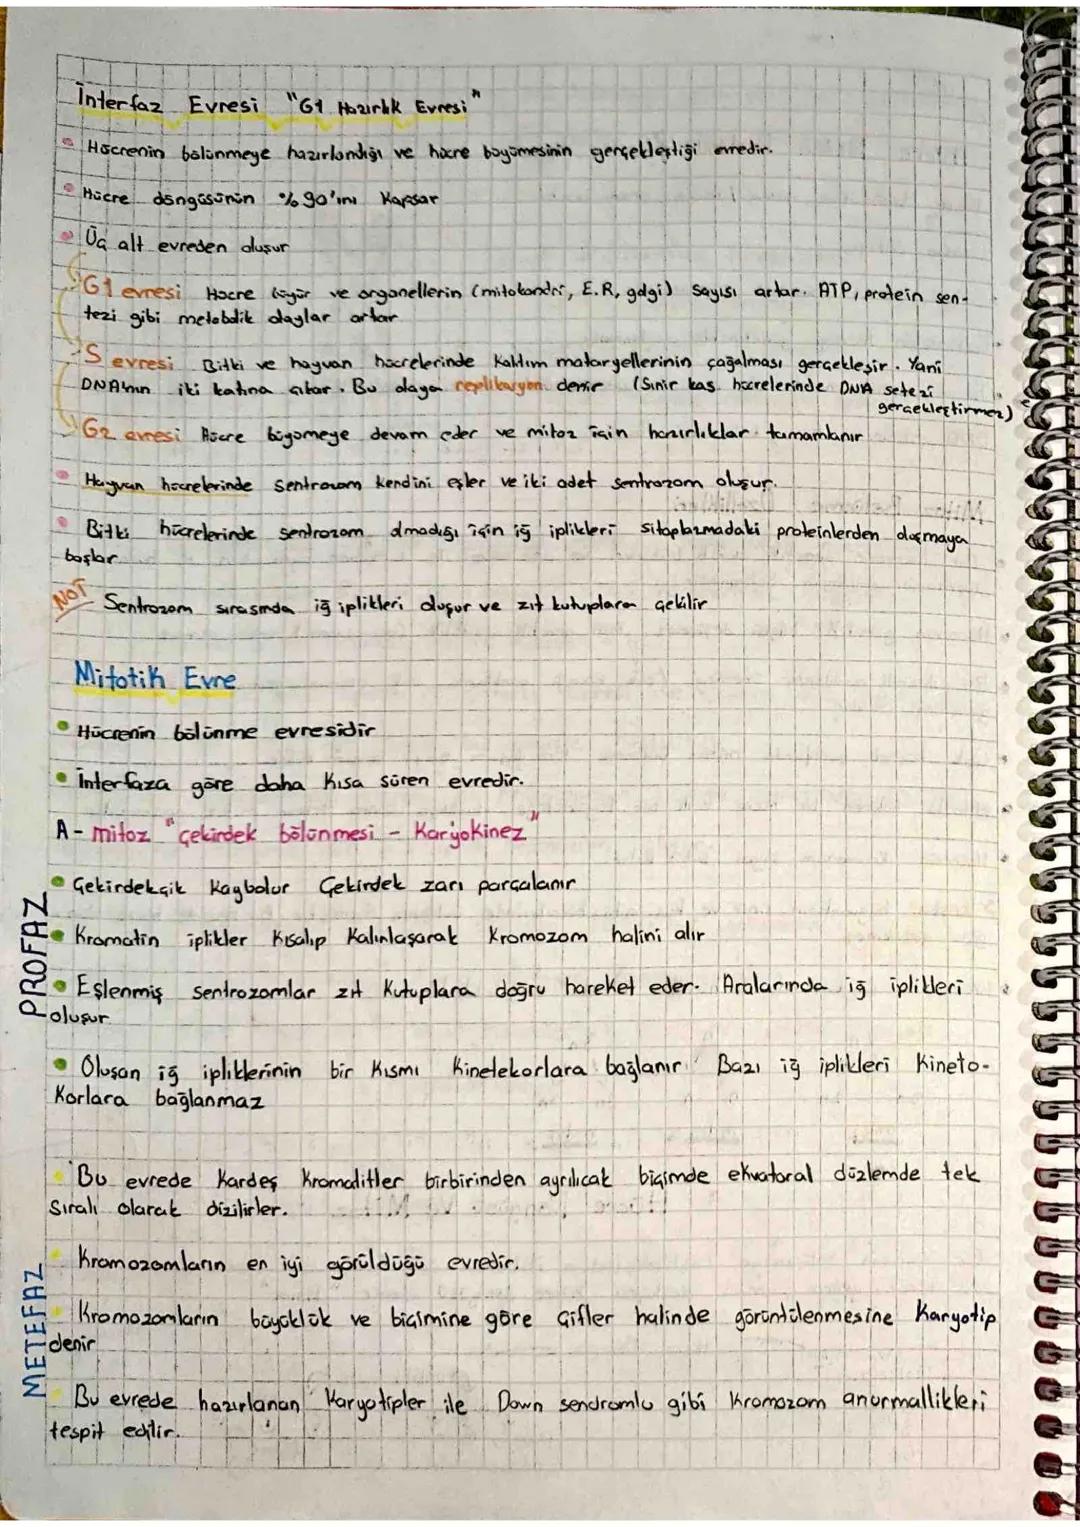 İnterfaz Evresi "G1 Hazırlık Evresi"
Hücrenin bölünmeye hazırlandığı ve hücre büyümesinin gerçekleştiği evredir.
Hücre döngüsünün %90'ını Kapsar
Üç alt evreden oluşur
G1 evresi Hücre büyür ve organellerin (mitokondri, E.R, golgi) sayısı artar. ATP, protein sen-
tezi gibi metobolik olaylar artar
S evresi Bitki ve hayvan hücrelerinde kalıtım materyellerinin çoğalması gerçekleşir. Yani
DNA'nın iki katına çıkar. Bu olaya replikasyon denir (Sinir kas hücrelerinde DNA setezi
gerçekleştirmez)
G2 evresi Hücre büyümeye devam eder ve mitoz için hazırlıklar tamamlanır
Hayvan hücrelerinde sentrozom kendini eşler ve iki adet sentrozom oluşur.
Bitki hücrelerinde sentrozom olmadığı için iğ iplikleri sitoplazmadaki proteinlerden oluşmaya
başlar
NOT Sentrozom sırasında iğ iplikleri oluşur ve zıt kutuplara çekilir
Mitotik Evre
Hücrenin bölünme evresidir
İnterfaza göre daha kısa süren evredir.
A- mitoz "çekirdek bölünmesi - Karyokinez"
PROFAZ
Çekirdekçik kaybolur Çekirdek zarı parçalanır
Kromatin iplikler kısalıp kalınlaşarak kromozom halini alır
Eşlenmiş sentrozomlar zıt kutuplara doğru hareket eder. Aralarında iğ iplikleri
oluşur
Oluşan iğ ipliklerinin bir kısmı kinetekorlara bağlanır Bazı iğ iplikleri kineto-
korlara bağlanmaz
METEFAZ
Bu evrede kardeş kromatitler birbirinden ayrılıcak biçimde ekvatoral düzlemde tek
sıralı olarak dizilirler.
Kromozomların en iyi görüldüğü evredir.
Kromozomların büyüklük ve biçimine göre çifler halinde görüntülenmesine karyotip
denir
Bu evrede hazırlanan karyotipler ile Down sendromlu gibi kromozom anormallikleri
tespit edilir.